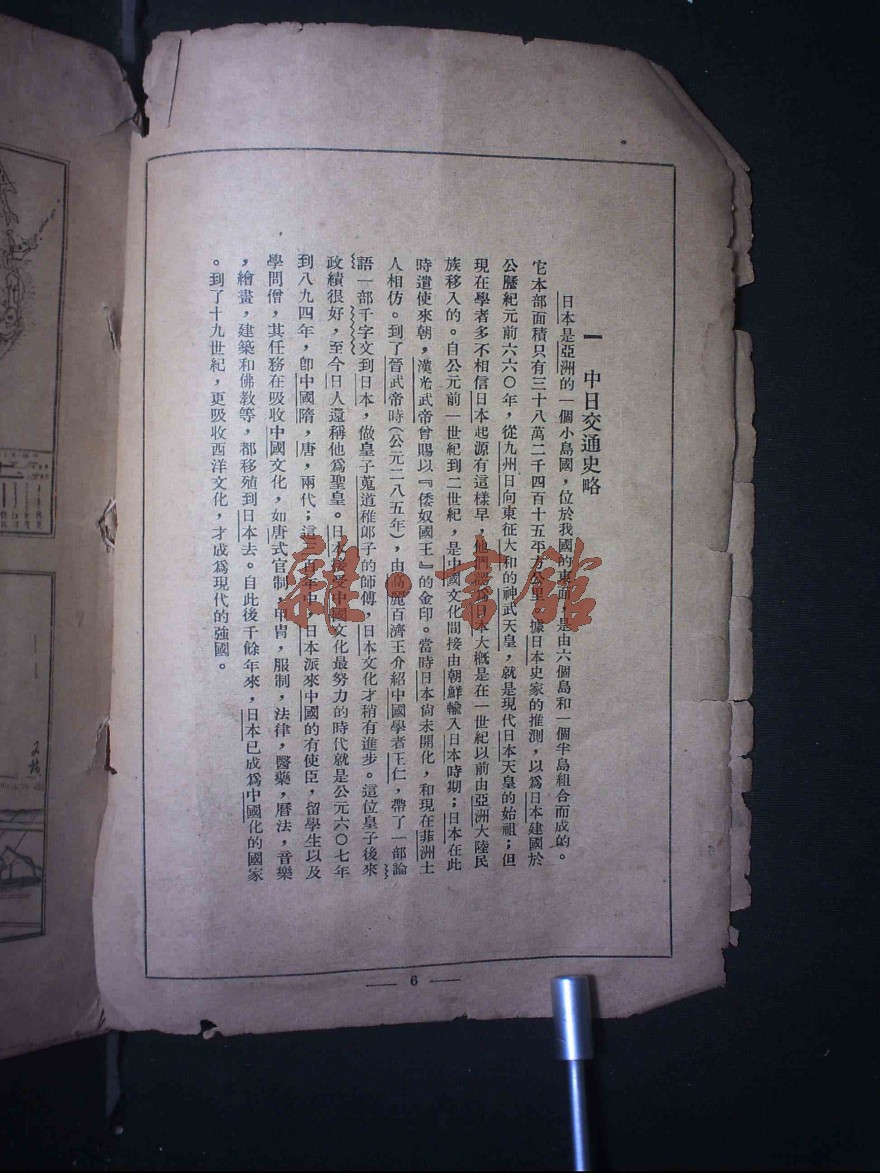 一　中日交通史略
日本是亞洲的一個小島國，位於我國的東面，是由六個島和一個半島組合而成的。
它本部面積只有三十八萬二千四百十五平方公里。據日本史家的推測，以爲日本建國於
公歷紀元前六六〇年，從九州日向東征大和的神武天皇，就是現代日本天皇的始祖；但
現在學者多不相信日本起源有這樣早，他們認爲日本大概是在一世紀以前由亞洲大陸民
族移入的。自公元前一世紀到二世紀，是中國文化間接由朝鮮輸入日本時期；日本在此
時遣使來朝，漢光武帝曾賜以『倭奴國王』的金印。當時日本尙未開化，和現在菲洲土
人相仿。到了晉武帝時(公元二八五年)，由高麗百濟王介紹中國學者王仁，帶了一部論
語一部千字文到日本，做皇子菟道稚郎子的師傅，日本文化才稍有進步。這位皇子後來
政績很好，至今日人還稱他爲聖皇。日本接受中國文化最努力的時代就是公元六〇七年
到八九四年，卽中國隋，唐，兩代；這三百年中，日本派來中國的有使臣，留學生以及
學問僧，其任務在吸收中國文化，如唐式官制，甲冑，服制，法律，醫藥，曆法，音樂
，繪畫，建築和佛教等，都移殖到日本去。自此後千餘年來，日本已成爲中國化的國家
。到了十九世紀，更吸收西洋文化，才成爲現代的強國。
— 6 —
雜·書館